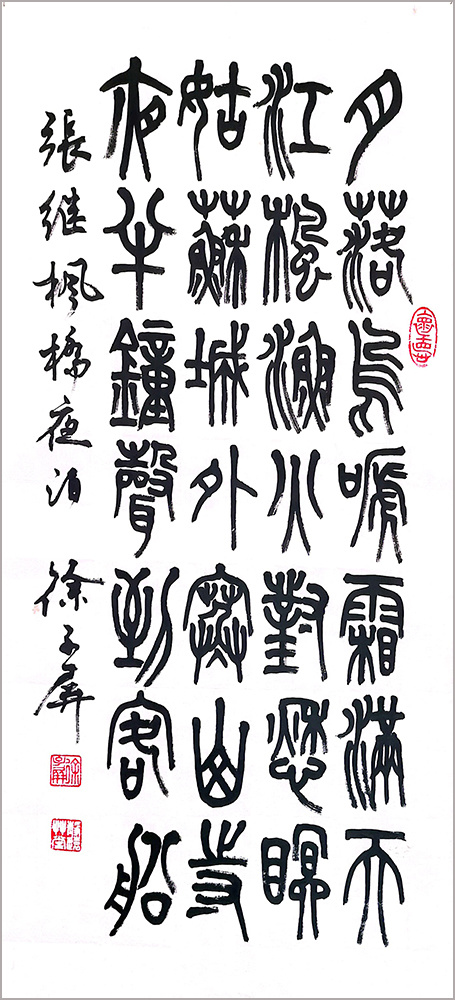 月落烏嗁霜滿天
江楓漁火對愁瞑
姑蘇城外寒山寺
夜半鐘聲到客船
張继楓橋夜泊 徐子屏